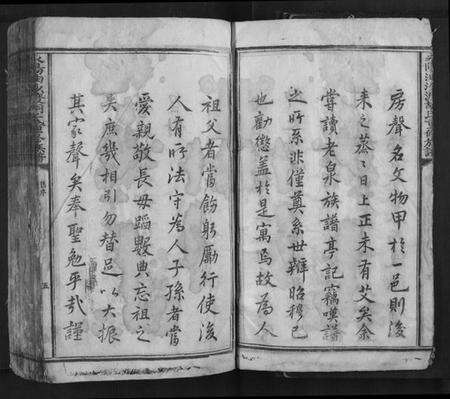 房聲名文物甲於一邑則後
來之蒸蒸日上正未有艾矣余
嘗讀老泉族譜亭記竊嘆譜
之所系非僅奠系世辨昭穆已
也勸懲蓋於是寓焉故為人
祖父者當飭躬勵行使後
人有所法守為人子孫者當
愛親敬長毋蹈數典忘祖之
失庶幾相引勿替足以大振
其家聲矣奉聖勉乎哉謹
五